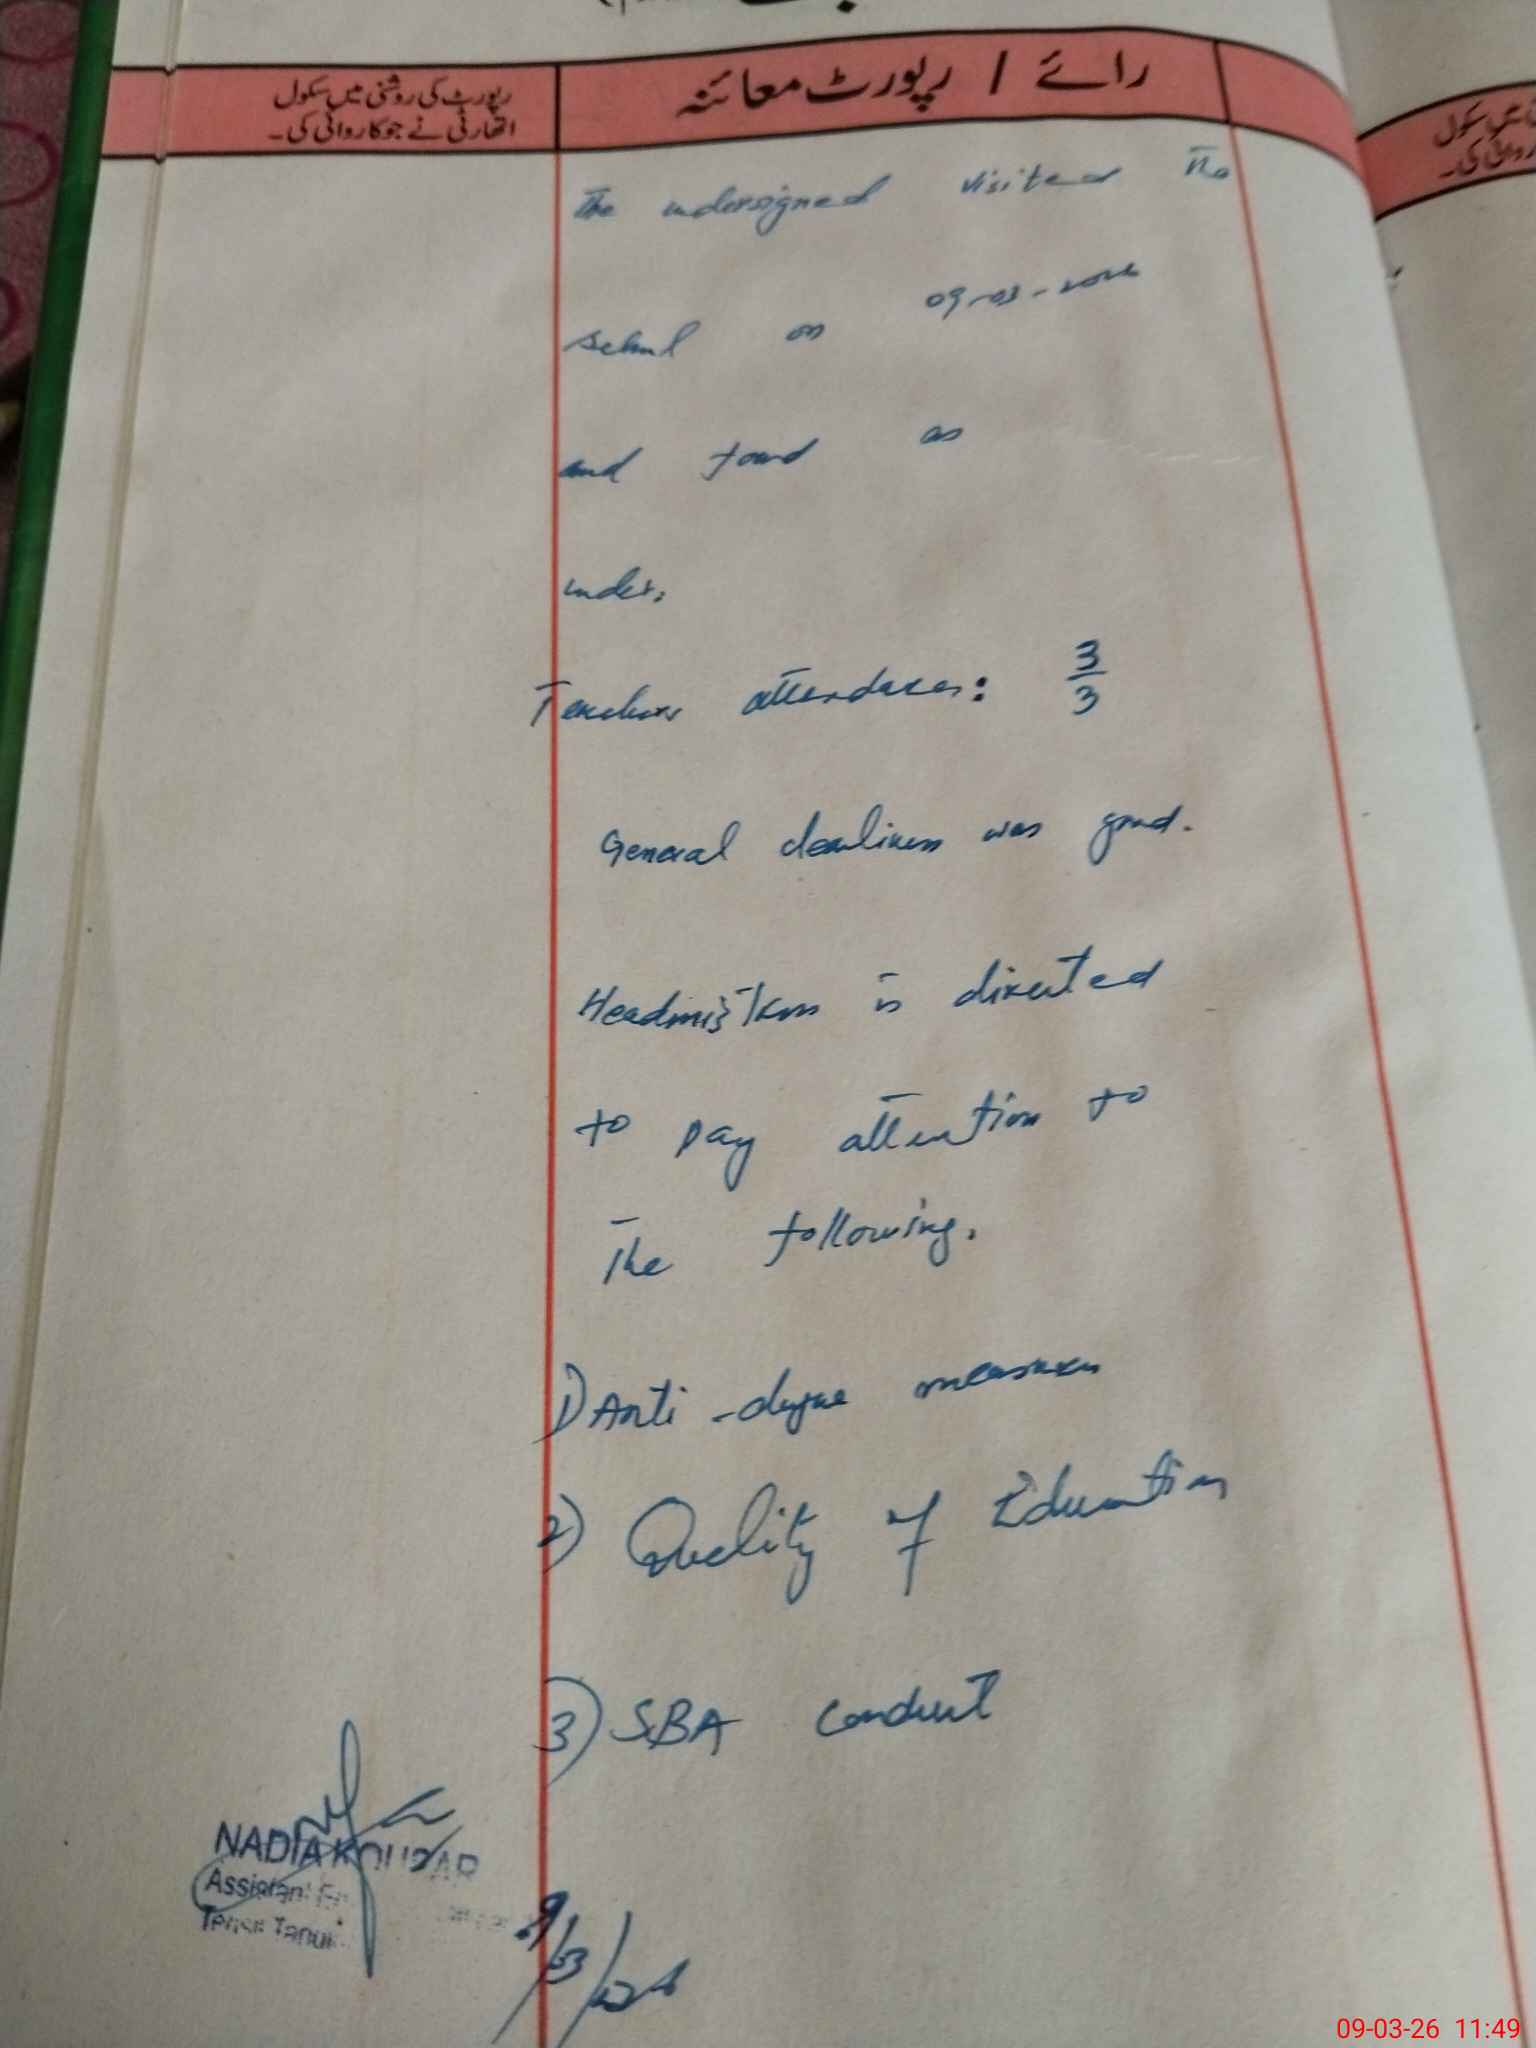 رائے / رپورٹ معائنہ
رپورٹ کی روشنی میں سکول
اتھارٹی نے جو کاروائی کی۔
The undersigned visited The
School on 09-03-2026
and found as
under.
Teachers attendance: 3/3
General cleanliness was good.
Headmistress is directed
to pay attention to
The following.
1) Anti-dengue measures
2) Quality of Education
3) SBA conduct
NADIA KOUSAR
Assistant
9/03/026
09-03-26 11:49